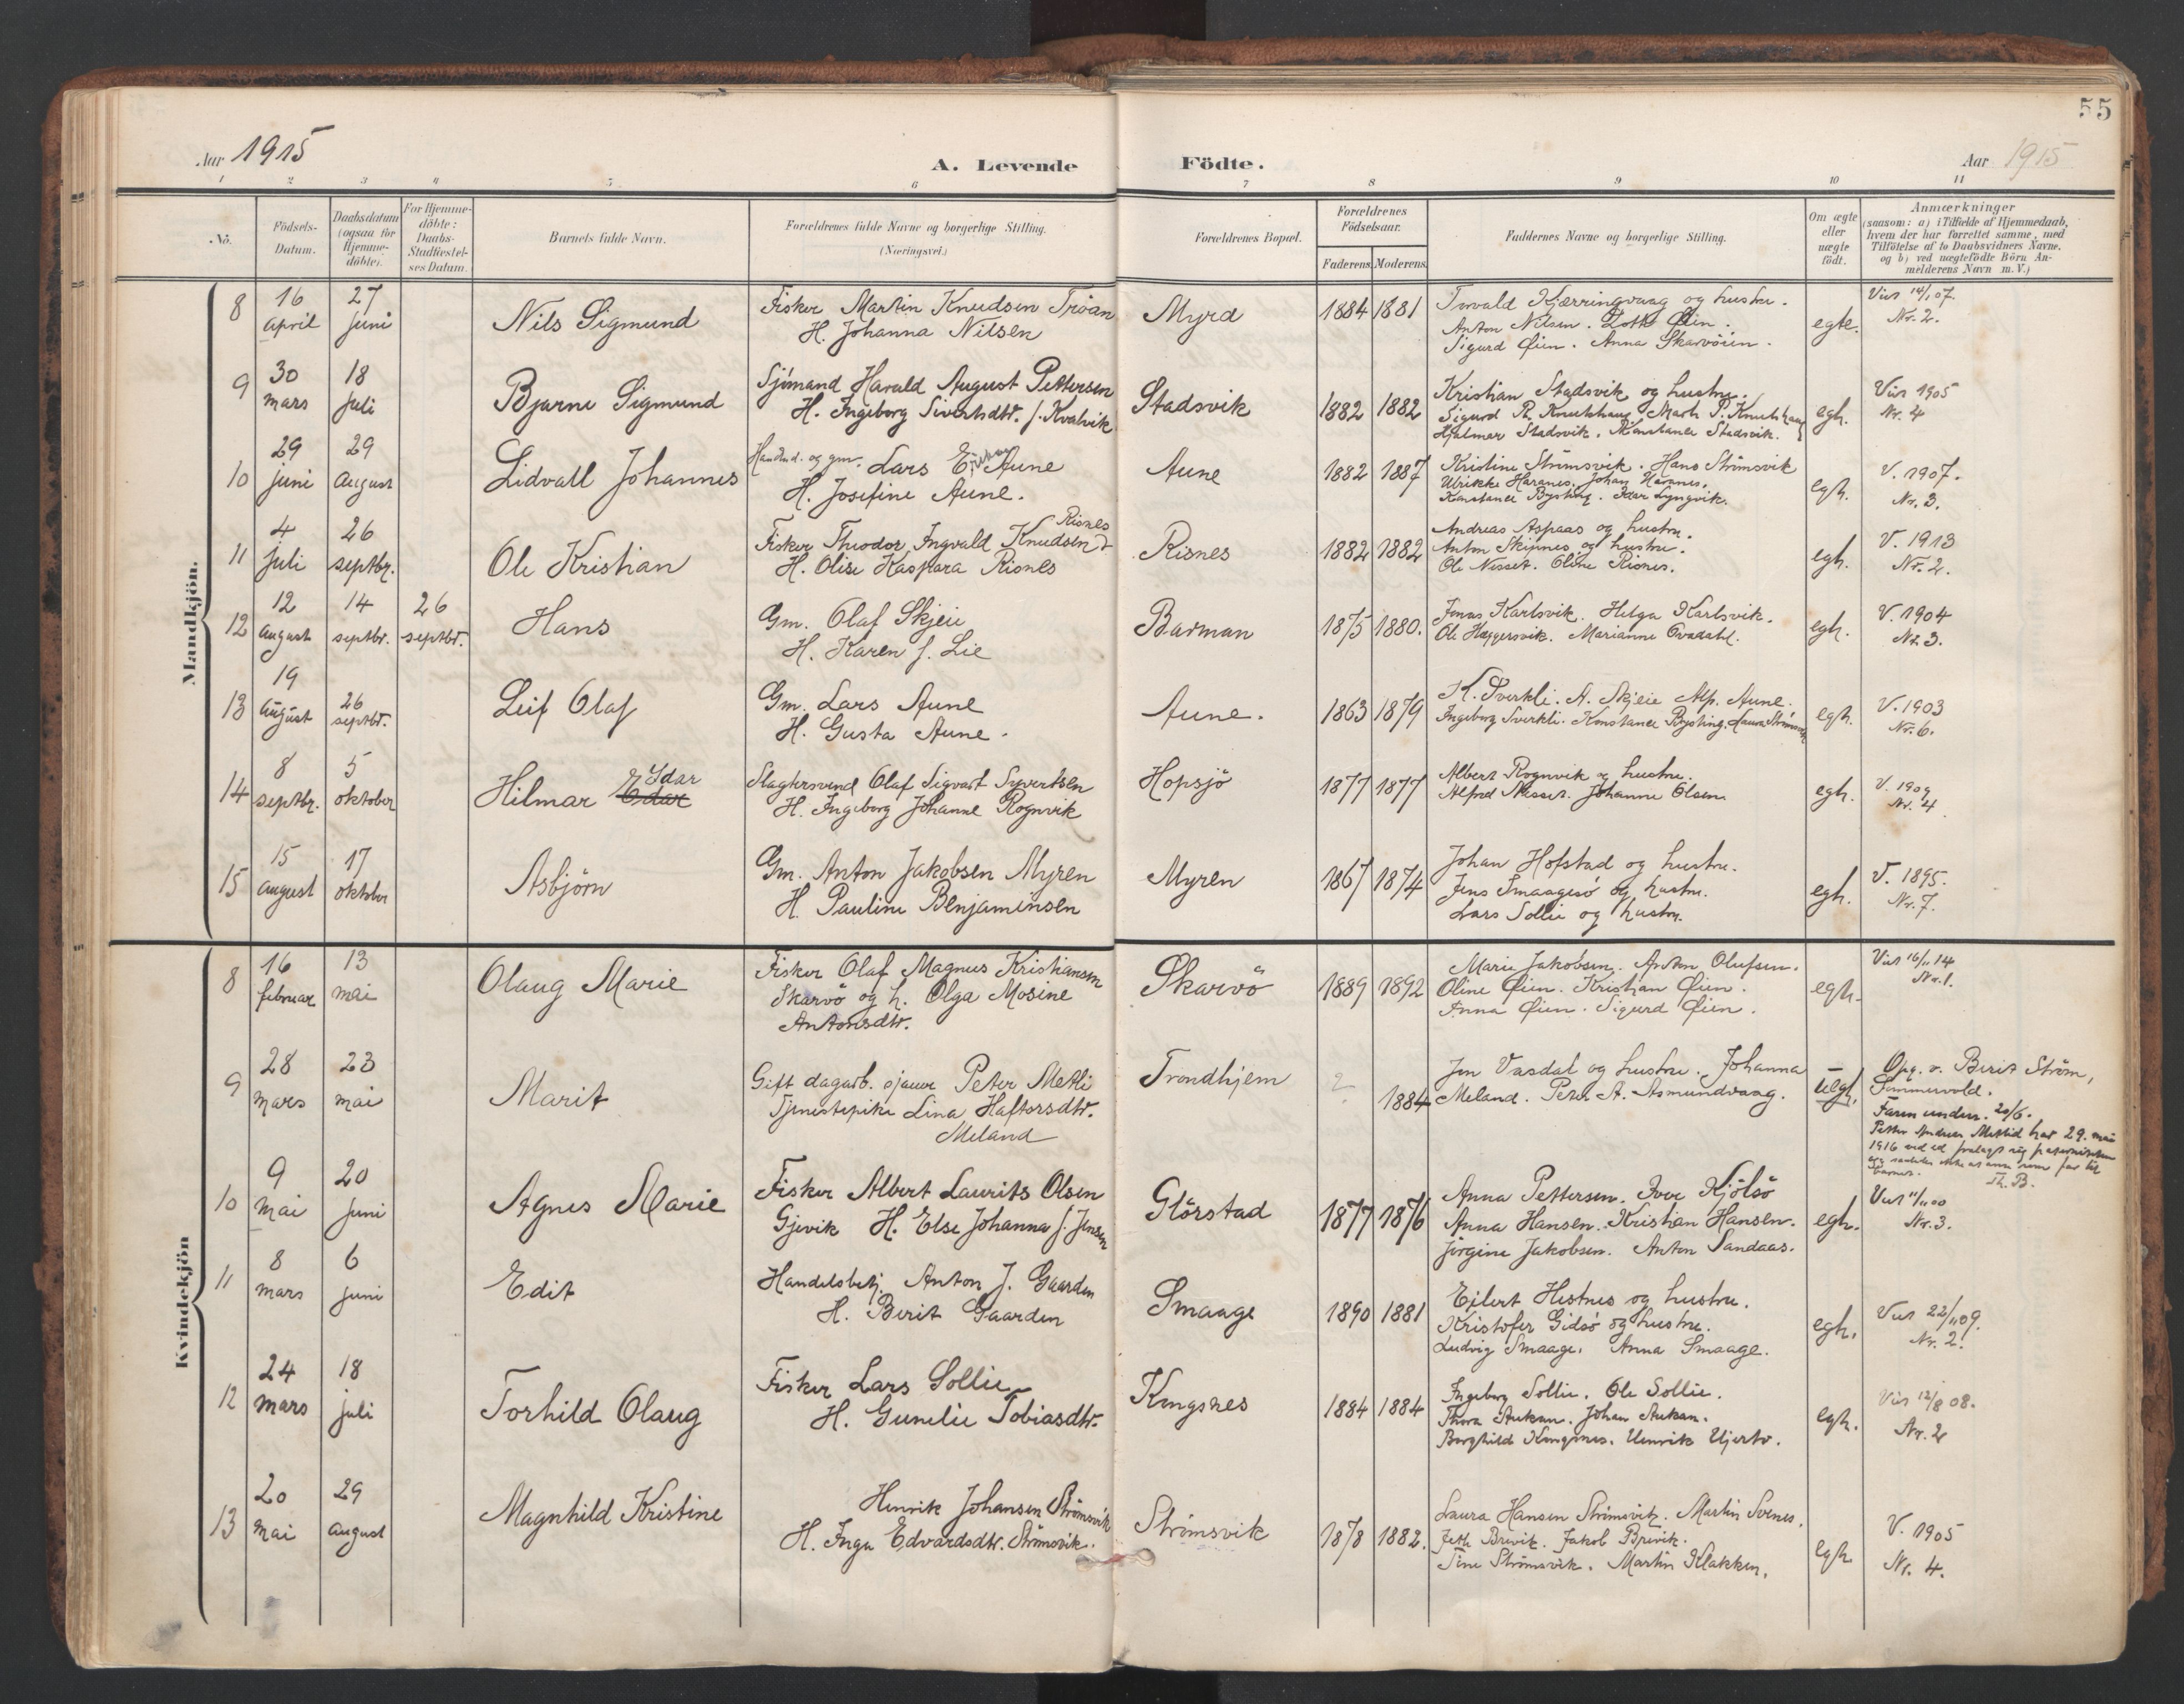 55
Aar 1915
A. Levende Födte.
Aar 1915
1 2 3 4 5 6 7 8 9 10 11
No.
Födsels-
Datum.
Daabsdatum
(ogsaa for
Hjemme-
döbte).
For Hjemme-
döbte:
Daabs-
Stadfæstel-
ses Datum.
Barnets fulde Navn.
Forældrenes fulde Navne og borgerlige Stilling.
(Næringsvei.)
Forældrenes Bopæl.
Forældrenes
Födselsaar.
Faderens. Moderens.
Faddernes Navne og borgerlige Stilling.
Om ægte
eller
uægte
födt.
Anmærkninger
(saasom: a) i Tilfælde af Hjemmedaab,
hvem der har forrettet samme, med
Tilföielse af to Daabsvidners Navne,
og b) ved uægtefödte Börn An-
melderens Navn m. V.)
Mandkjön.
8 16 april 27 juni Nils Sigmund
Fisker Martin Knudsen Tröan
H. Johanna Nilsen
Myrd 1884 1881
Torvald Kjærringvaag og hustru.
Anton Nilsen. Lotte Øien.
Sigurd Øien. Anna Skarvöien.
egte.
Viet 14/1 07.
Nr. 2.
9 30 mars 18 juli Bjarne Sigmund
Sjömand Harald August Pettersen
H. Ingeborg Sivertsdtr. f. Kvalvik
Stadsvik 1882 1882
Kristian Stadsvik og hustru.
Sigurd P. Knutshaug. Marth P. Knutshaug
Hjalmar Stadsvik. Konstance Stadsvik.
egh.
Vier 1905
Nr. 4
10 29 juni 29 august Lidvall Johannes
og gm. Lars Aune
H. Josefine Aune.
Aune 1882 1887
Kristine Strömsvik. Hans Strömsvik
Ulrikke Haranes. Johan Haranes.
Konstance Bysting. Idar Lyngvik.
egh.
V. 1907.
Nr. 3.
11 4 juli 26 septbr. Ole Kristian
Risnes
Fisker Theodor Ingvald Knudsen
H. Olise Kaspara Risnes
Risnes 1882 1882
Andreas Aspaas og hustru.
Anton Skipnes og hustru.
Ole Nesset. Oline Risnes.
egh.
V. 1913
Nr. 2.
12 12 august 14 septbr. 26 septbr. Hans
Gm. Olaf Skjeie
H. Karen f. Lie
Barman 1875 1880.
Jonas Karlsvik. Helga Karlsvik.
Ole Haggersvik. Marianne Ovadahl.
egh.
V. 1904
Nr. 3.
13 19 august 26 septbr. Leif Olaf
Gm. Lars Aune
H. Gusta Aune.
Aune. 1863 1879
K. Sverkli. A. Skjeie Alp. Aune.
Ingeborg Sverkli. Konstance Bysting. Laura Strömsvik.
egh.
V. 1903
Nr. 6.
14 8 septbr. 5 oktober Hilmar Edar Idar
Slagtersvend Olaf Sigvart Syvertsen
H. Ingeborg Johanne Rognvik
Hopsjö 1877 1877
Albert Rognvik og hustru.
Alfred Nesset. Johanne Olsen.
egh.
V. 1909
Nr. 4
15 15 august 17 oktober Asbjörn
Gm. Anton Jakobsen Myren
H. Pauline Benjaminsen
Myren 1867 1874
Johan Hofstad og hustru.
Jens Smaagesö og hustru.
Lars Sollie og hustru.
egh.
V. 1895.
Nr. 7.
Kvindekjön
8 16 februar 13 mai Olaug Marie
Fisker Olaf Magnus Kristiansen
Skarvö og h. Olga Mosine
Antonsdtr.
Skarvö 1889 1892
Marie Jakobsen. Anton Olufsen.
Oline Øien. Kristian Øien.
Anna Øien. Sigurd Øien.
egh.
Viet 16/11 14
Nr. 1.
9 28 mars 23 mai Marit
Gift dagarb. sjauer Peter Metli
Tjenestepike Lina Haftorsdtr.
Meland
Trondhjem ? 1884
Jon Vasdal og hustru. Johanna
Meland. Peter A. Asmundvaag.
uegh.
Opg. v. Berit Ström,
Sommervold.
Faren underr. 20/6.
Petter Andreas Metlid har 29. mai
1916 ved ed fralagt sig paterniteten
og ansees som far til
barnet.
Th. B.
10 9 mai 20 juni Agnes Marie
Fisker Albert Laurits Olsen
Gjevik H. Else Johanna f. Jensen
Glörstad 1877 1876
Anna Pettersen. Iver Kjölsö
Anna Hansen. Kristian Hansen.
Jörgine Jakobsen. Anton Sandaas.
egh.
Viet 11/11 00
Nr. 3.
11 8 mars 6 juni Edit
Handelsbetj. Anton J. Gaarden
H. Berit Gaarden
Smaage 1890 1881
Ejlert Hestnes og hustru.
Kristofer Gidsö og hustru.
Ludvig Smaage. Anna Smaage.
egh.
Viet 22/11 09.
Nr. 2.
12 24 mars 18 juli Torhild Olaug
Fisker Lars Sollie
H. Gunelie Tobiasdtr.
Kongsnes 1884 1884
Ingeborg Sollie. Ole Sollie.
Thora Aukan. Johan Aukan.
Borghild Kongsnes. Henrik Hjerto.
egh.
Vier 12/8 08.
Nr. 2
13 20 mai 29 august Magnhild Kristine
Henrik Johansen Strömsvik
H. Inga Edvardsdtr. Strömsvik.
Strömsvik 1878 1882.
Laura Hansen Strömsvik. Martin Svenes.
Jette Brevik. Jakob Brevik.
Sine Strömsvik. Martin Klakken.
egh
V. 1905
Nr. 4.